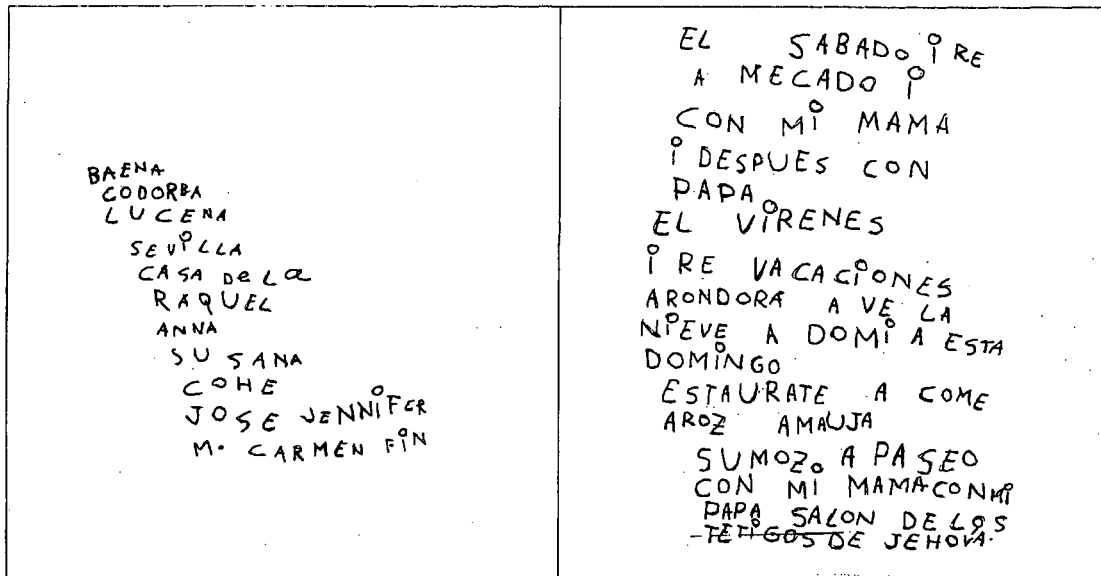 BAENA
CODORBA
LUCENA
SEViLLA
CASA DE La
RAQUEL
ANNA
SUSANA
COHE
JOSE JENNiFER
M. CARMEN FiN
EL SABADO i RE
A MECADO i
CON Mi MAMA
i DESPUES CON
PAPA
EL ViRENES
i RE VACACiONES
ARONDORA A VE LA
NiEVE A DOMi A ESTA
DOMiNGO
ESTAURATE A COME
AROZ AMAUJA
SUMOZO A PASEO
CON Mi MAMA CON Mi
PAPA SALON DE LOS
TETiGOS DE JEHOVA.